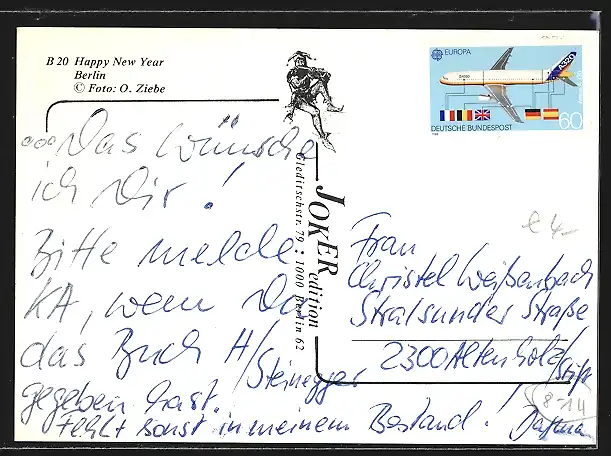 B 20 Happy New Year
Berlin
© Foto: O. Ziebe
...Das wünsche
ich Dir!
Bitte melde
KA, wenn Du
das Buch H/
Steinegger
gegeben hast.
Fehlt sonst in meinem Bestand!
JOKER edition
Gleditschstr. 79 : 1000 Berlin 62
EUROPA
A320
DEUTSCHE BUNDESPOST
60
€ 4-
Frau
Christel Weißenbach
Stralsunder Straße
2300 Altenholz/
Stift
8-14